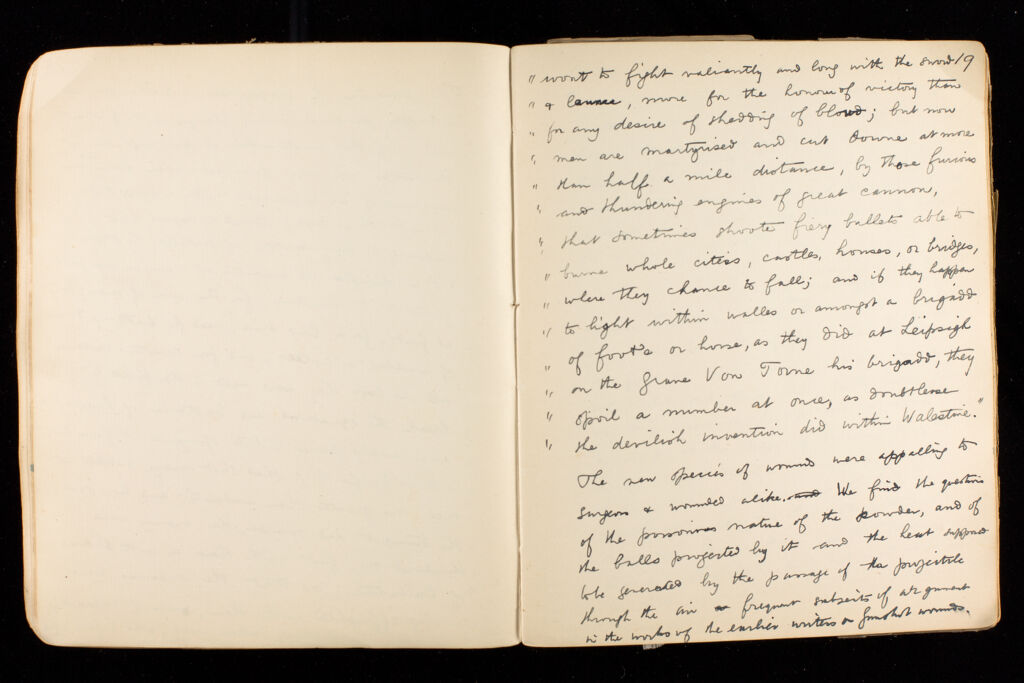 19
" wont to fight valiantly and long with the sword
" & launce, more for the honour of victory than
" for any desire of shedding of blood; but now
" men are martyrised and cut downe at more
" than half a mile distance, by those furious
" and thundering engines of great cannon,
" that sometimes shoote fiery bullets able to
" burne whole cities, castles, houses, or bridges,
" where they chance to fall; and if they happen
" to light within walles or amongst a brigadd
" of foote or horse, as they did at Leipsigh
" on the Grave Von Torne his brigadd, they
" spoil a number at once, as doubtlesse
" the devilish invention did within Walestine."
The new species of wound were appalling to
surgeon & wounded alike. We find the question
of the poisonous nature of the powder, and of
the balls projected by it and the heat supposed
to be generated by the passage of the projectile
through the air frequent subjects of argument
in the works of the earlier writers on gunshot wounds.